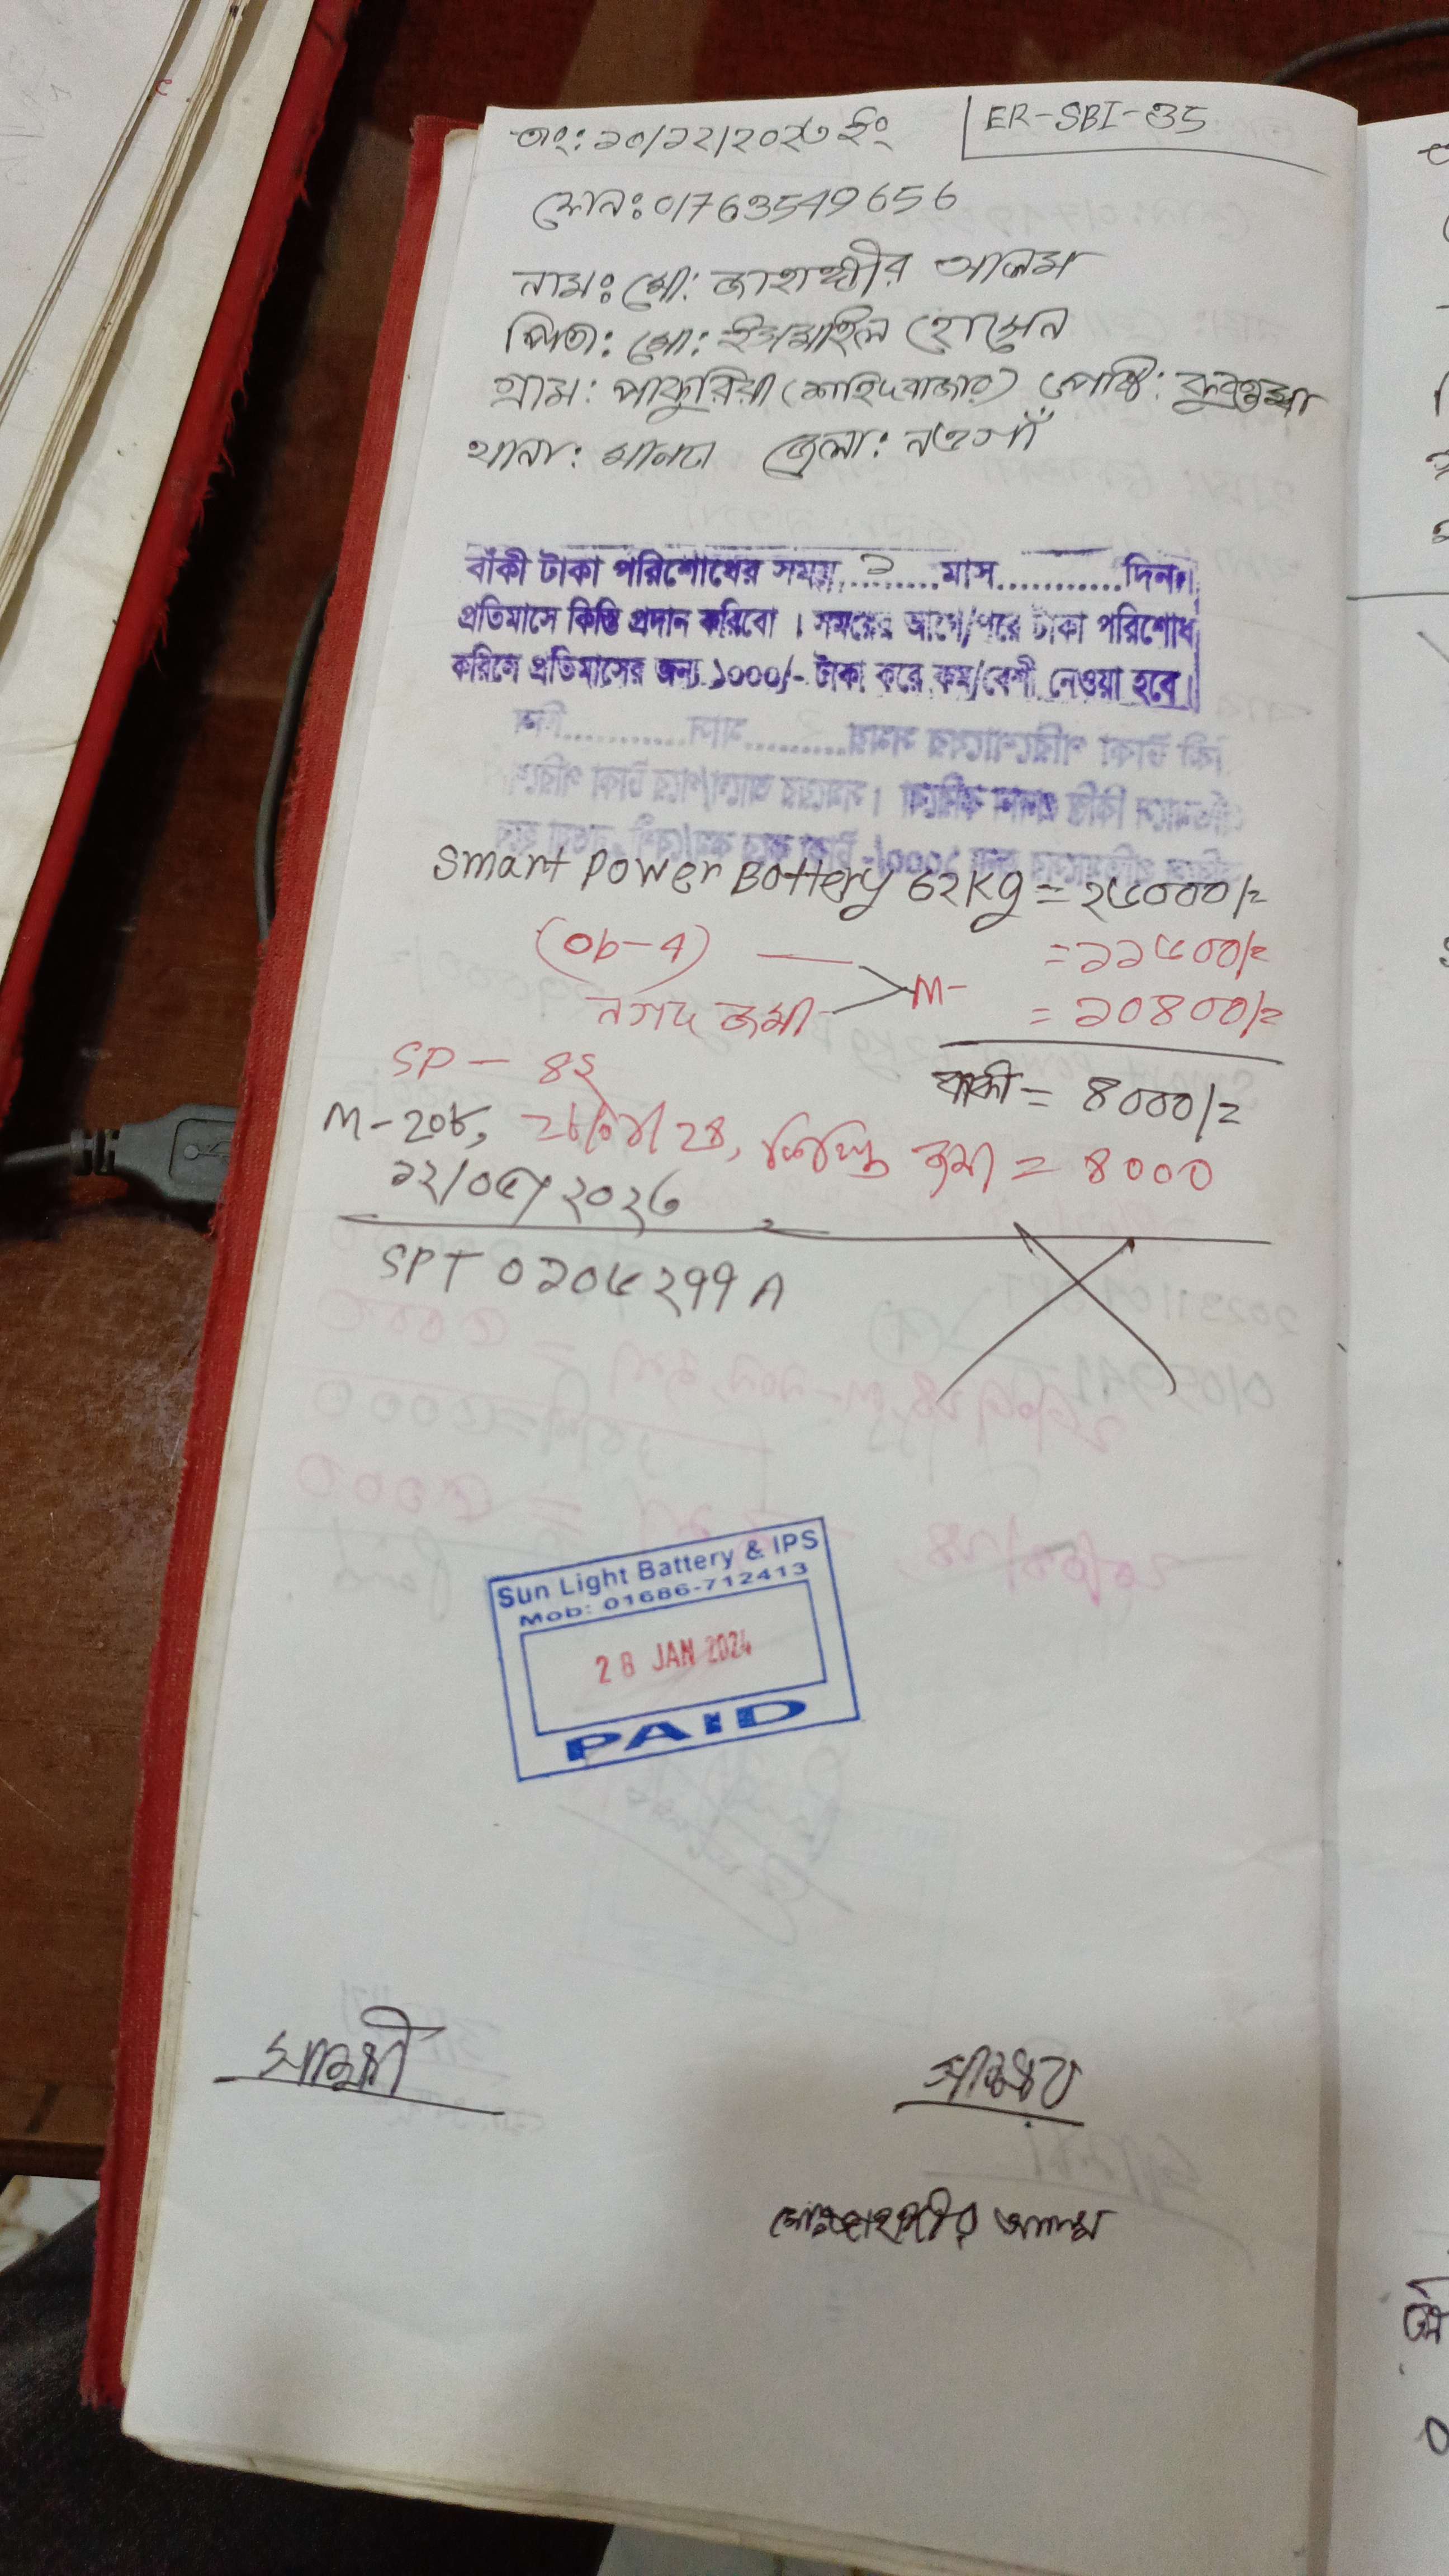 তাং: ১০/১২/২০২৩ ইং ER-SBI-35
ফোন: 01763549656
নাম: মো: জাহাঙ্গীর আলম
পিতা: মো: ইসমাইল হোসেন
গ্রাম: পাকুরিয়া (শহিদবাজার) পোষ্ট:
থানা: মান্দা জেলা: নওগাঁ
বাঁকী টাকা পরিশোধের সময়.....১.....মাস...........দিন।
প্রতিমাসে কিস্তি প্রদান করিবো । সময়ের আগে/পরে টাকা পরিশোধ
করিলে প্রতিমাসের জন্য ১০০০/- টাকা করে কম/বেশী নেওয়া হবে।
Smart Power Battery 62Kg = ২৬০০০/=
(Ob-4) = ১১৬০০/=
নগদ জমা M- = ১০৪০০/=
SP - ৪২ বাকী = ৪০০০/=
জমা = ৪০০০
SPT ০১০৬২৭৭A
Sun Light Battery & IPS
Mob: 01686-712413
28 JAN 2024
PAID
সাক্ষী
স্বাক্ষর
মোঃ জাহাঙ্গীর আলম